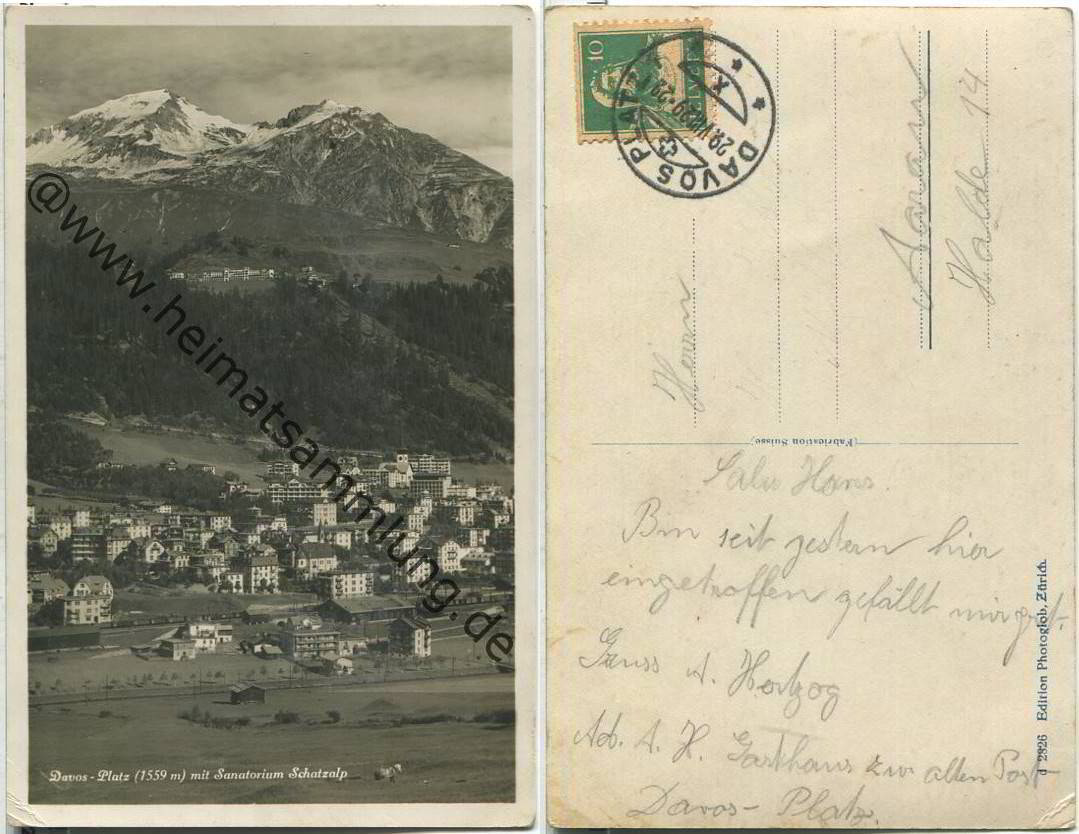 Davos-Platz (1559 m) mit Sanatorium Schatzalp
@www.heimatsammlung.de
10
HELVETIA
DAVOS PLATZ
Herrn
Aarau
Halde 14
(Fabrication Suisse)
Salu Hans!
Bin seit gestern hier
eingetroffen gefällt mir gut.
Gruss A. Hertzog
Ad. A. H. Gasthaus zur alten Post
Davos-Platz.
d 2326 Edition Photoglob, Zürich.